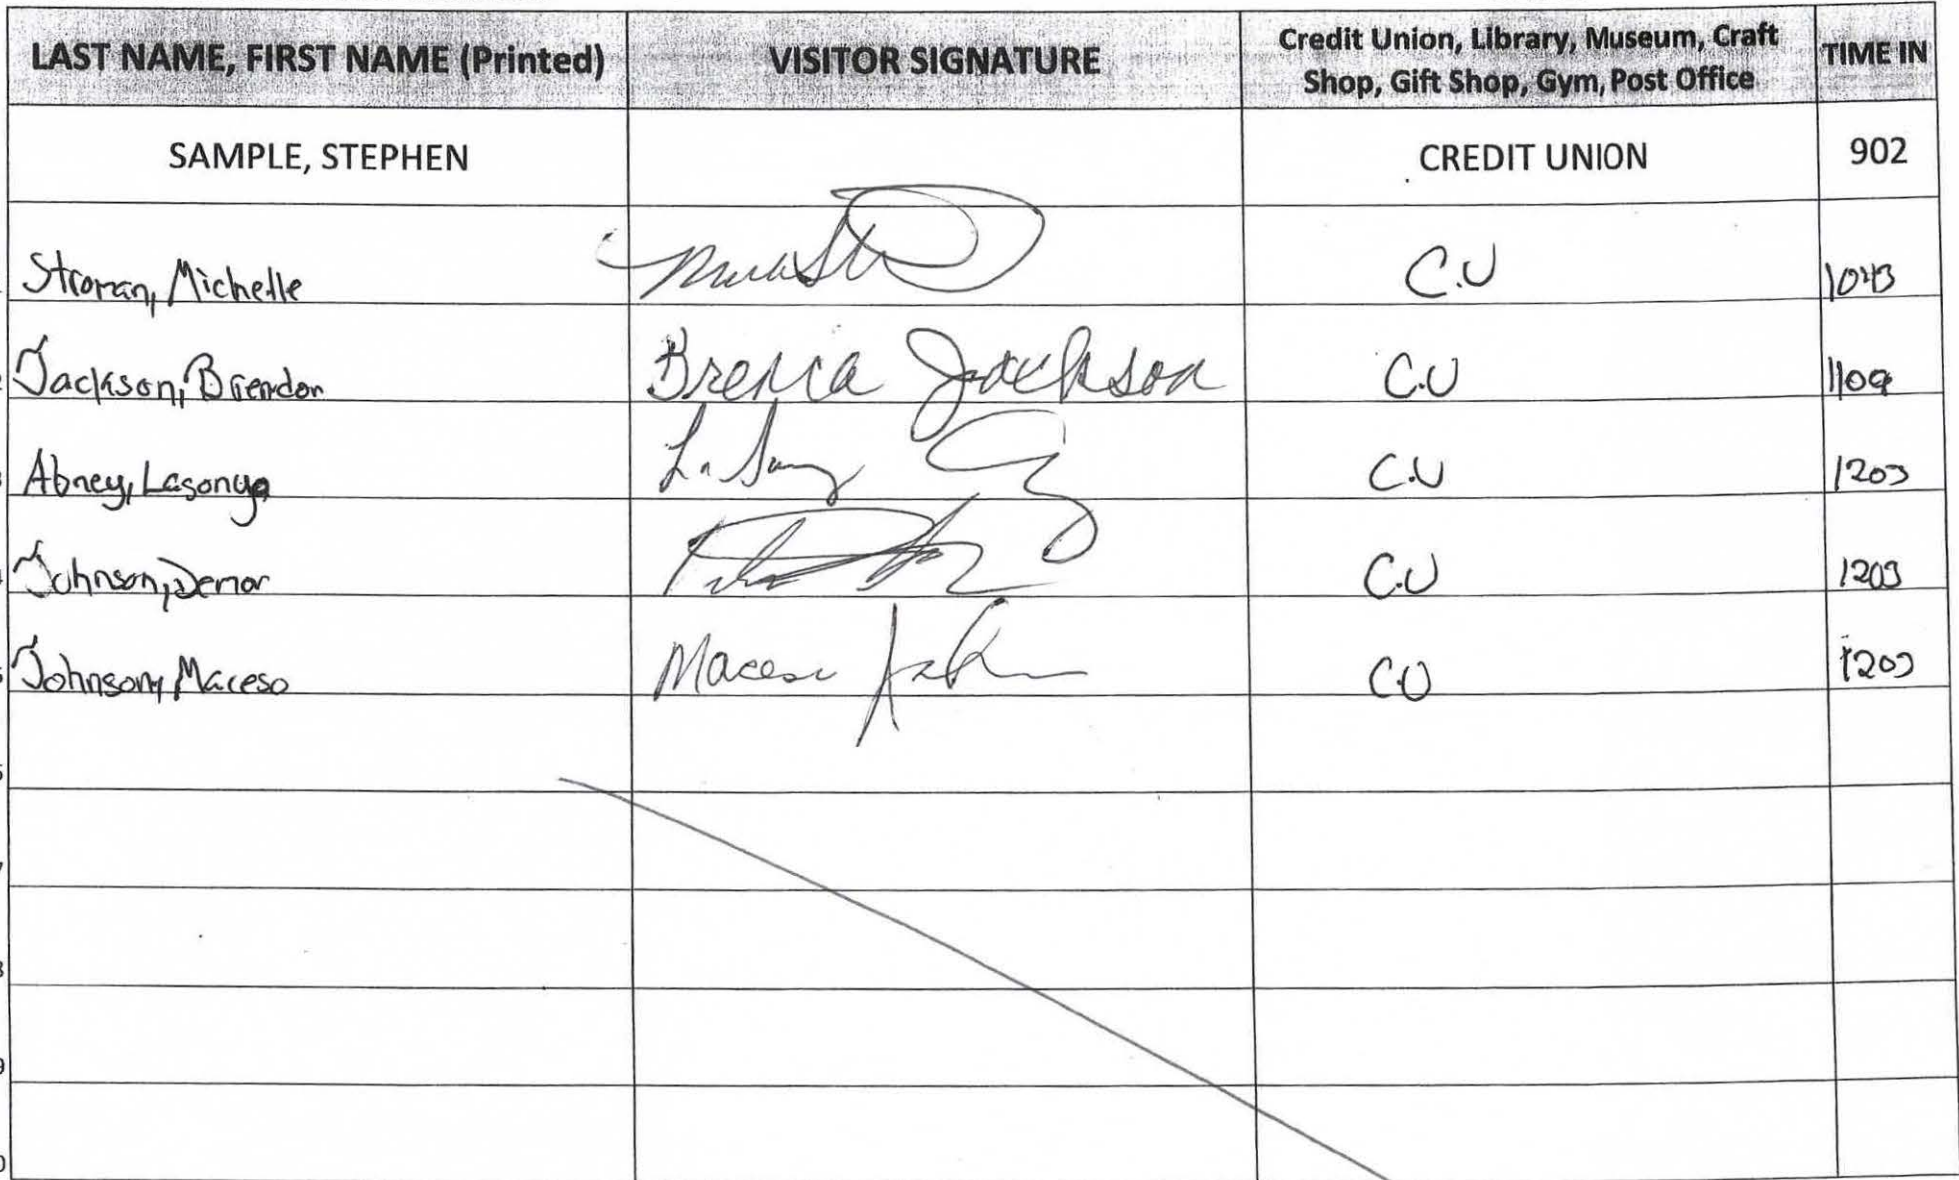 LAST NAME, FIRST NAME (Printed) VISITOR SIGNATURE Credit Union, Library, Museum, Craft Shop, Gift Shop, Gym, Post Office TIME IN
SAMPLE, STEPHEN CREDIT UNION 902
Stroman, Michelle C.U 1043
Jackson, Brendon Brenda Jackson C.U 1109
Abney, Lasonya C.U 1203
Johnson, Demar C.U 1203
Johnson, Maceso Maceso C.U 1203